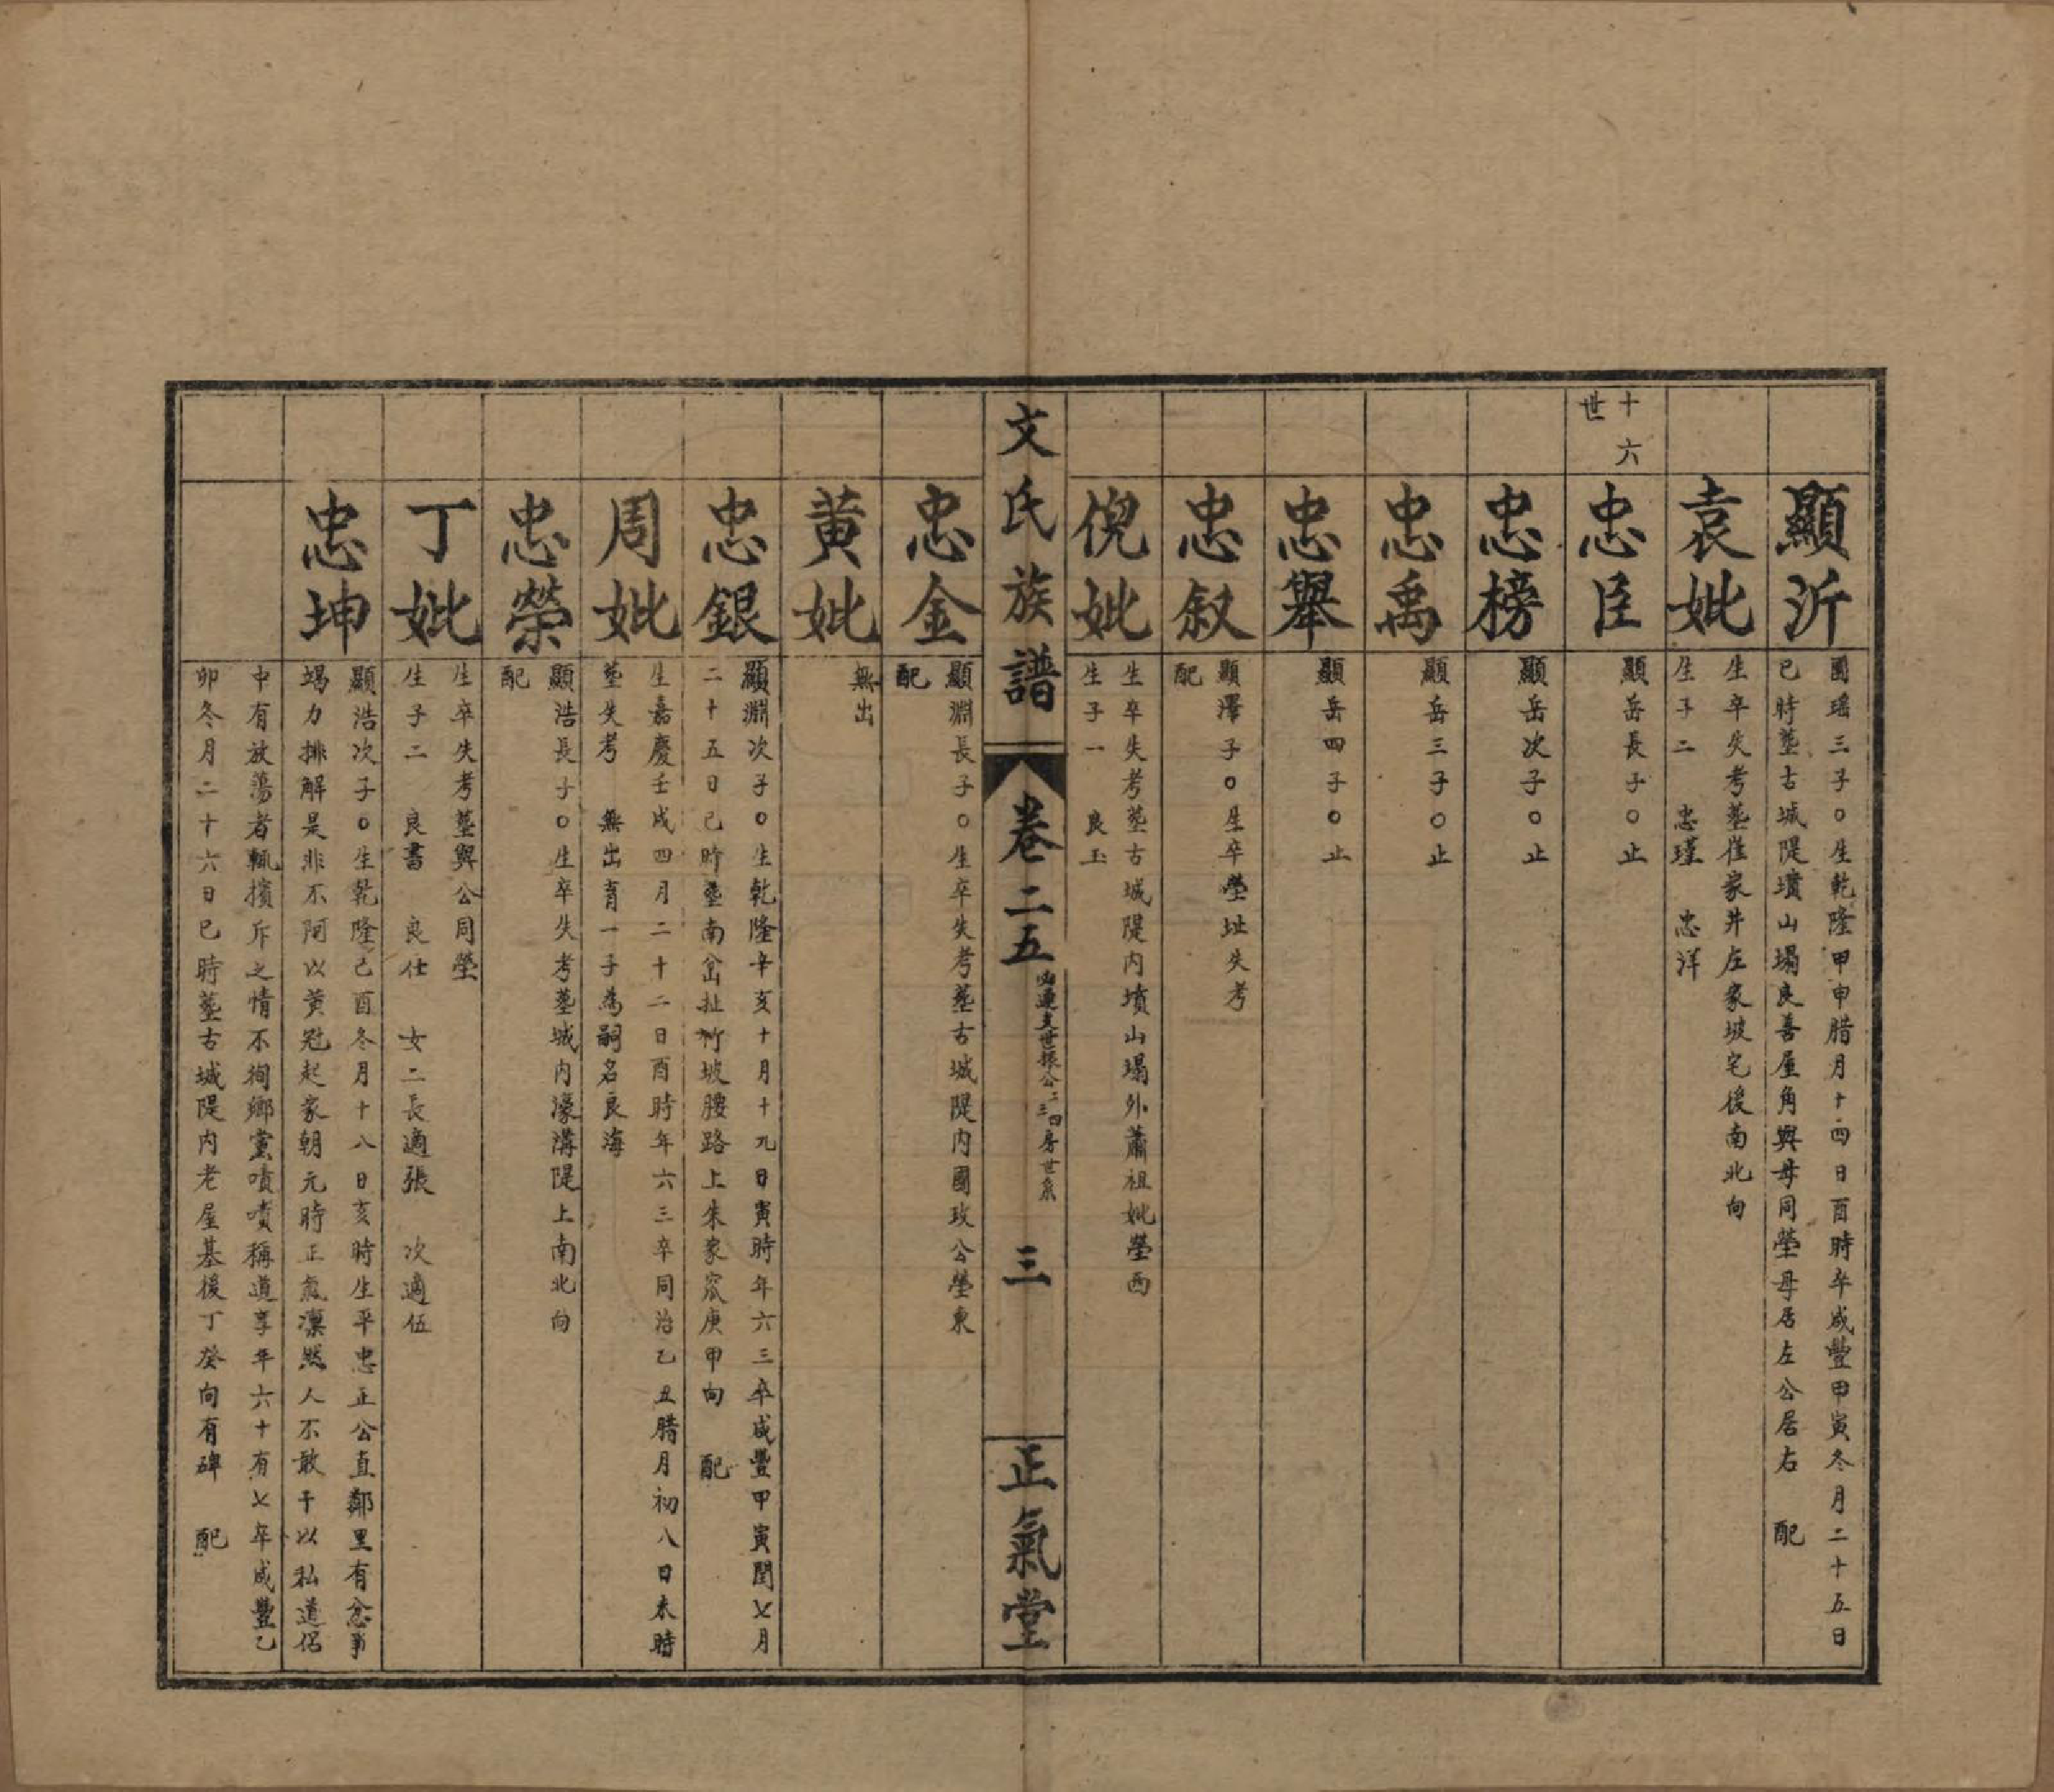 顯沂
國瑶三子○生乾隆甲申腊月十四日酉時卒咸豐甲寅冬月二十五日
已時塟古城隄墳山塌良善屋角與母同塋母居左公居右　配
袁妣
生卒失考塟崔家井左家坡宅後南北向
生子二　忠瑾　忠洋
十六世
忠臣
顯岳長子○止
忠榜
顯岳次子○止
忠禹
顯岳三子○止
忠舉
顯岳四子○止
忠叙
顯澤子○生卒塋址失考
配
倪妣
生卒失考塟古城隄内墳山塌外蕭祖妣塋西
生子一　良玉
文氏族譜
卷二五
世振公二三四房世系
三
正氣堂
忠金
顯淵長子○生卒失考塟古城隄内國玫公塋東
配
黄妣
無出
忠銀
顯淵次子○生乾隆辛亥十月十九日寅時年六三卒咸豐甲寅閏七月
二十五日已時塟南岔扯竹坡腰路上朱家窊庚甲向　配
周妣
生嘉慶壬戌四月二十二日酉時年六三卒同治乙丑腊月初八日未時
塟失考　無出育一子為嗣名良海
忠榮
顯浩長子○生卒失考塟城内濠溝隄上南北向
配
丁妣
生卒失考塟與公同塋
生子二　良書　良仕　女二長適張　次適伍
忠坤
顯浩次子○生乾隆己酉冬月十八日亥時生平忠正公直鄰里有忿爭
竭力排解是非不阿以黄冠起家朝元時正氣凜然人不敢干以私道侣
中有放蕩者輒擯斥之情不徇鄉黨嘖嘖稱道享年六十有七卒咸豐乙
卯冬月二十六日已時塟古城隄内老屋基後丁癸向有碑　配